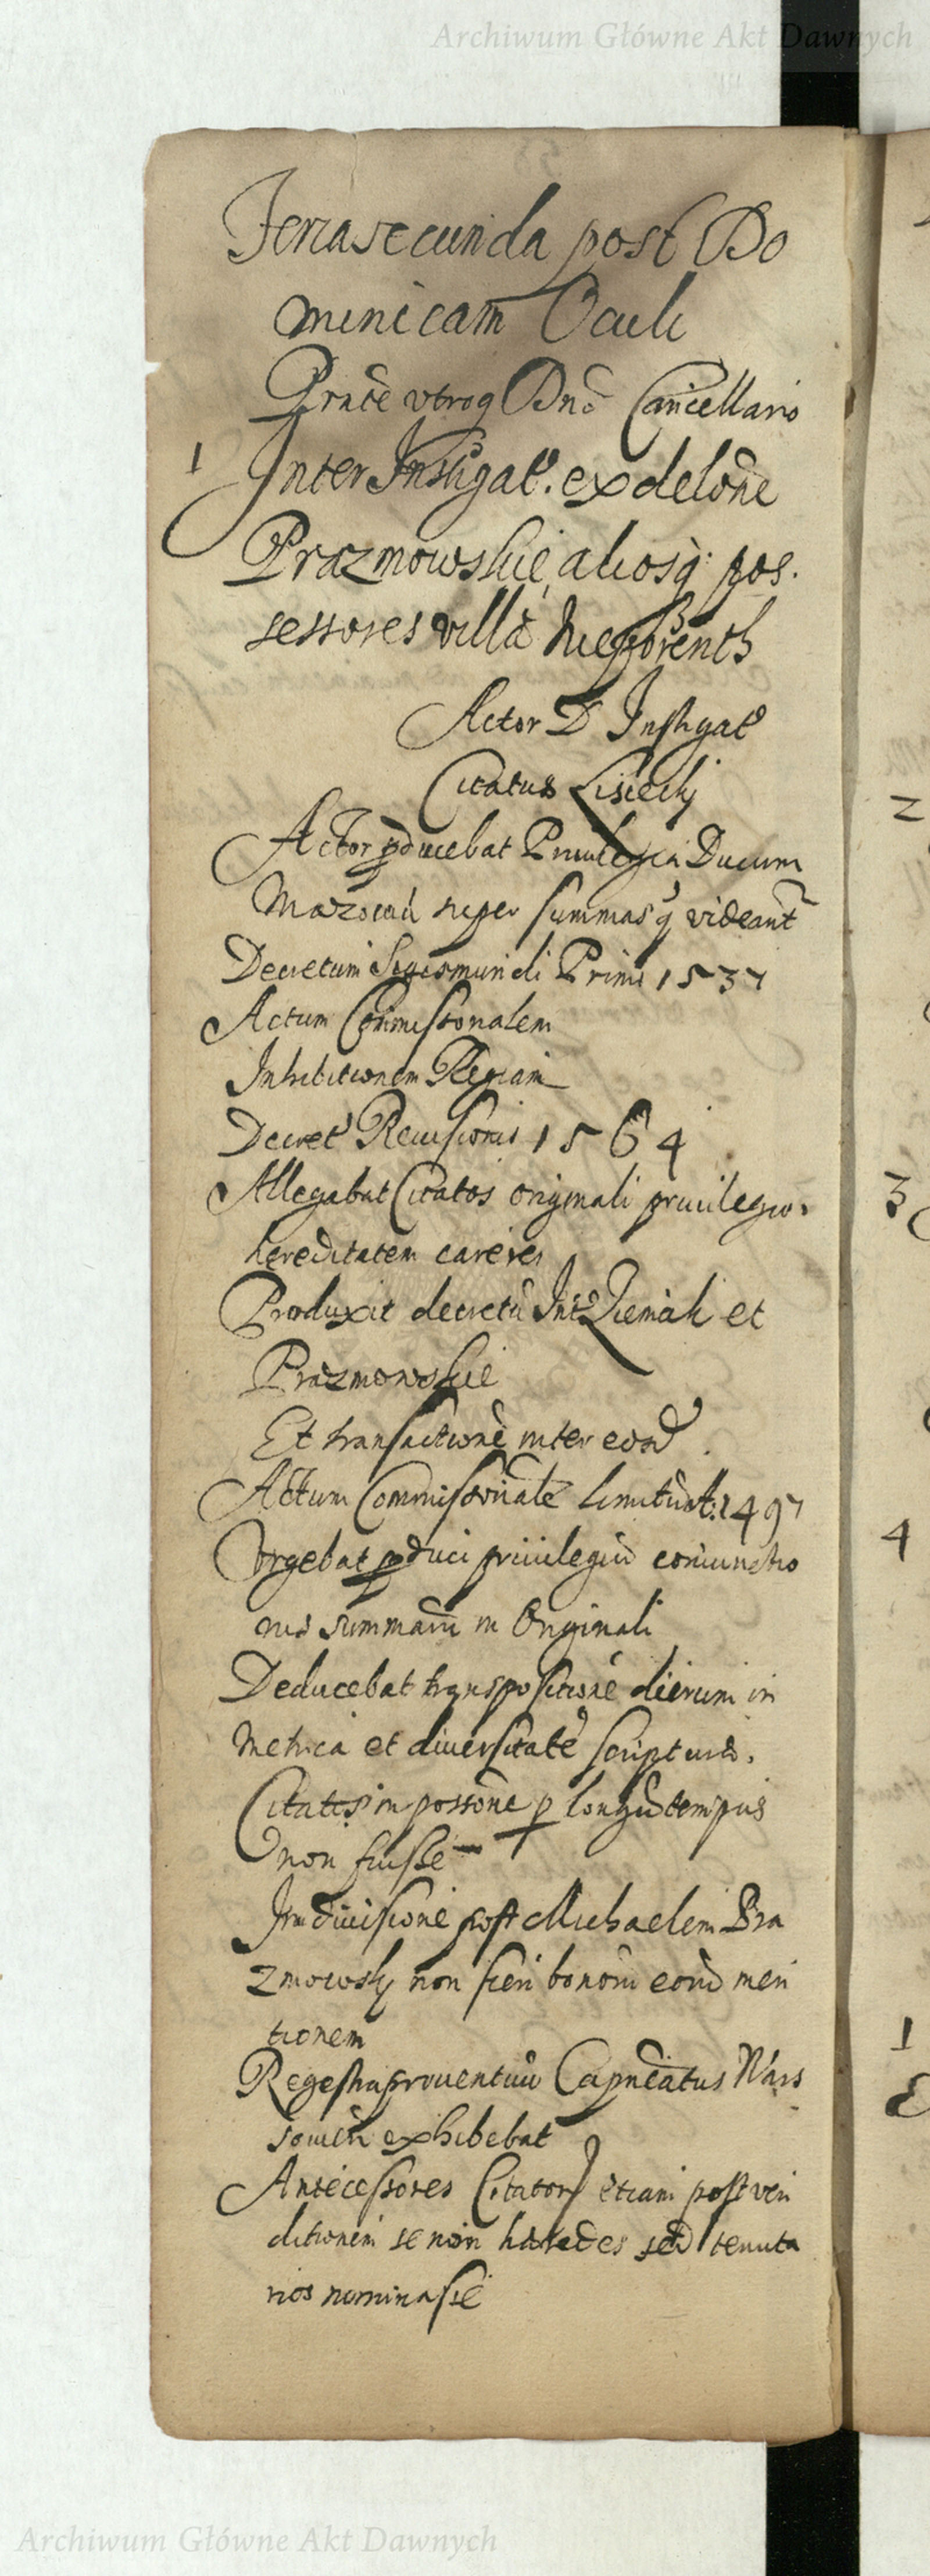 Archiwum Główne Akt Dawnych
Feria secunda post Do
minicam Oculi
Prñte vtroq Dno Cancellario
1 Inter Instigat. ex delõne
Prazmowskie aliosq pos.
sessores villæ Nieporenth
Actor D Instigat
Citatus Lisiecky
Actor pducebat Priuilegia Ducum
Mazouiæ super summas q videant
Decretum Sigismundi Primi 1537
Actum Commissionalem
Inhibitionem Regiam
Decret Reuisionis 1564
Allegabat Citatos originali priuilegio
hereditatem carere
Produxit decretũ Int Ziemak et
Prazmowskie
Et transactionẽ inter eosd
Actum Commissionalẽ limitat. 1497
Vrgebat pduci priuilegiũ coniunctio
nis summarũ in Originali
Deducebat transpositionẽ dierum in
Metrica et diuersitatẽ scripturæ.
Citatos in possone p longũ tempus
non fuisse
In diuisione post Michaelem Pra
zmowsky non fieri bonorũ eorũd men
tionem
Regestra prouentuũ Capneatus Wars
souien exhibebat
Antecessores Citator etiam post ven
ditionem se non hæredes sed tenuta
rios nominasse
2
3
4
1
Archiwum Główne Akt Dawnych